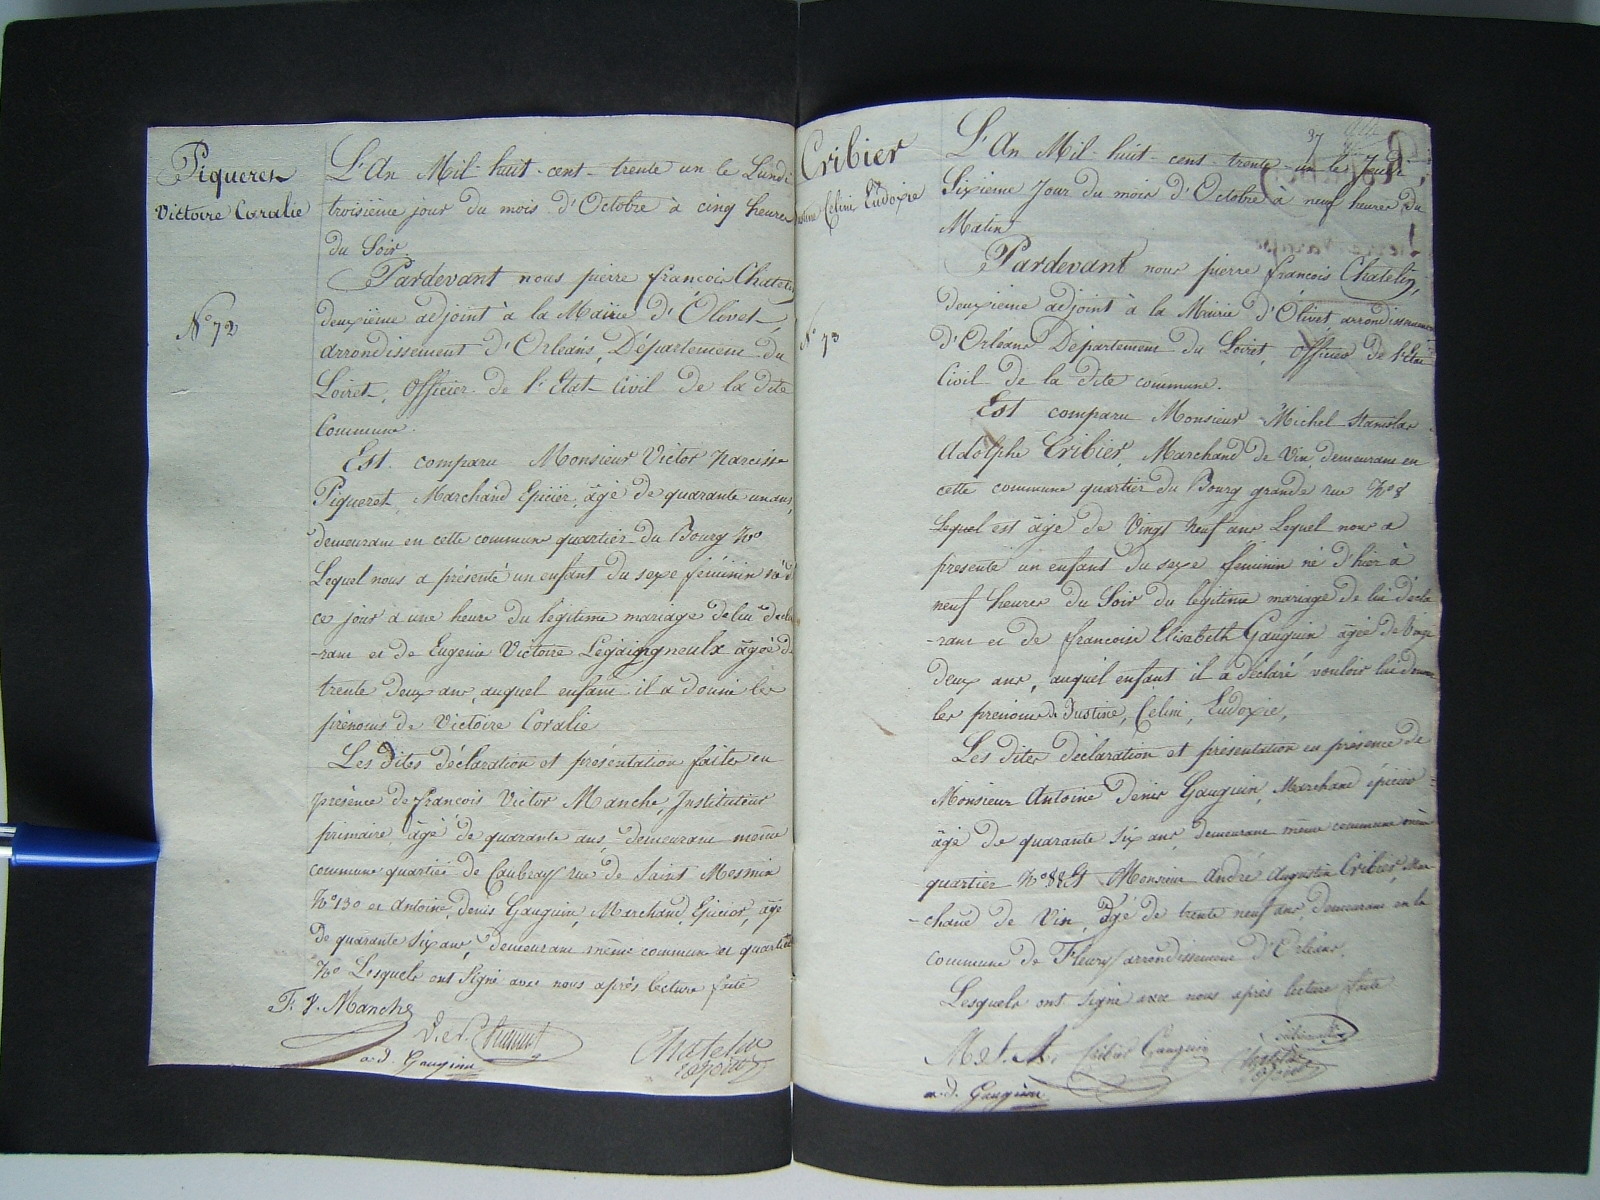 Piqueret
Victoire Coralie
N° 72
L'An Mil-huit-cent-trente un le Lundi
troisième jour du mois d'Octobre à cinq heures
du Soir
Pardevant nous pierre françois Chatelin
deuxième adjoint à la Mairie d'Olivet,
arrondissement d'Orléans, Département du
Loiret, Officier de l'Etat Civil de la dite
Commune.
Est comparu Monsieur Victor Narcisse
Piqueret, Marchand Epicier, âgé de quarante un ans,
demeurant en cette commune quartier du Bourg N°
Lequel nous a présenté un enfant du sexe féminin né
ce jour à une heure du légitime mariage de lui décla
-rant et de Eugenie Victoire Legaigneulx âgée de
trente deux ans, auquel enfant il a donné les
prénoms de Victoire Coralie
Les Dites déclaration et présentation faites en
présence de françois Victor Manche, Instituteur
primaire, âgé de quarante ans, demeurant même
commune quartier de Caubray rue de Saint Mesmin
N° 130 et Antoine, denis Gauguin, Marchand, Epicier, âgé
De quarante Six ans, demeurant même commune et quartier
N° Lesquels ont Signé avec nous après lecture faite
F. V. Manche
a.d. Gauguin
Chatelin
adjoint
Cribier
Justine Celini Eudoxie
N° 73
37
L'An Mil-huit-cent-trente-un le Jeudi,
Sixième Jour du mois d'Octobre à neuf heures du
Matin
Pardevant nous pierre françois Chatelin,
deuxième adjoint à la Mairie d'Olivet, arrondissement
d'Orléans Département du Loiret, Officier de l'Etat
Civil de la dite commune.
Est comparu Monsieur Michel Stanislas
Adolphe Cribier, Marchand de Vin, demeurant en
cette commune quartier du Bourg grande rue N° 8
Lequel est âgé de Vingt Neuf ans Lequel nous a
présenté un enfant du sexe féminin né d'hier à
neuf heures du Soir du légitime mariage de lui décla
-rant et de francoise Elisabeth Gauguin âgée de Vingt
deux ans, auquel enfant il a déclaré vouloir lui donner
les prénoms de Justine, Celini, Eudoxie,
Les dites déclaration et présentation en présence de
Monsieur Antoine Denis Gauguin, Marchand épicier
âgé de quarante six ans, demeurant même commune même
quartier N° 88 Et Monsieur André Augustin Cribier, Mar
-chand de Vin, âgé de trente neuf ans, demeurant en la
commune de Fleury arrondissement d'Orléans,
Lesquels ont signé avec nous après lecture faite
M. S. A. Cribier Gauguin
Chatelin
adjoint
a.d. Gauguin